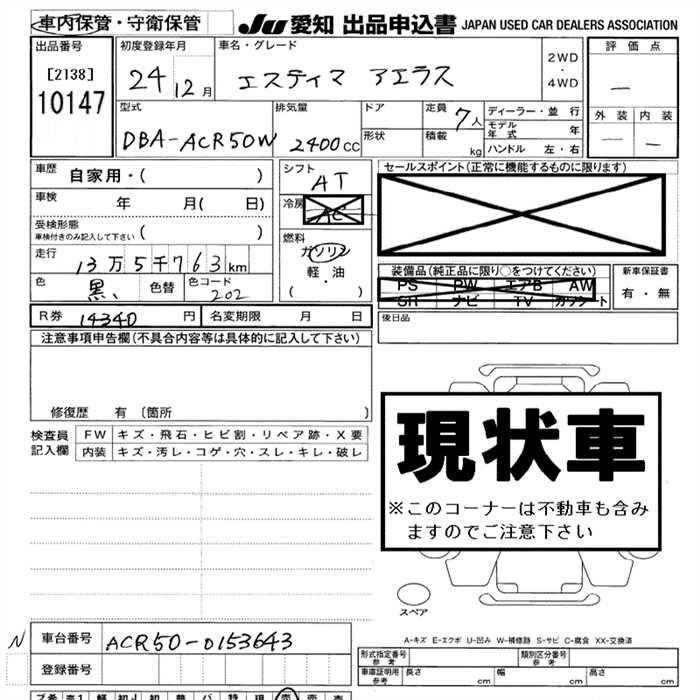 車内保管・守衛保管 JU 愛知 出品申込書 JAPAN USED CAR DEALERS ASSOCIATION
出品番号 初度登録年月 車名・グレード 評価点
[2138] 24 12月 エスティマ アエラス 2WD・4WD —
10147 外装 内装
— —
型式 排気量 ドア 定員 7人 ディーラー・並行
DBA-ACR50W 2400cc 形状 積載 kg モデル年式 年
ハンドル 左・右
車歴 自家用・( ) シフト AT セールスポイント(正常に機能するものに限ります)
車検 年 月( 日) 冷房 AC
受検形態 ( )
車検付きのみ記入して下さい
燃料 ガソリン
走行 13万5千763km 軽・油
色 黒、 色替 色コード 202 ( ・ )
装備品(純正品に限り○をつけてください) 新車保証書
PS PW エアB AW 有・無
SH ナビ TV カワシート
R券 14340 円 名変期限 月 日 後日品
注意事項申告欄(不具合内容等は具体的に記入して下さい)
修復歴 有 〔箇所 〕
検査員 FW キズ・飛石・ヒビ割・リペア跡・X要
記入欄 内装 キズ・汚レ・コゲ・穴・スレ・キレ・破レ
現状車
※このコーナーは不動車も含み
ますのでご注意下さい
スペア
A-キズ E-エクボ U-凹み W-補修跡 S-サビ C-腐食 XX-交換済
N 車台番号 ACR50-0153643
登録番号
形式指定番号 参考 類別区分番号 参考
車庫証明用 参考 長さ 幅 高さ
cm cm cm